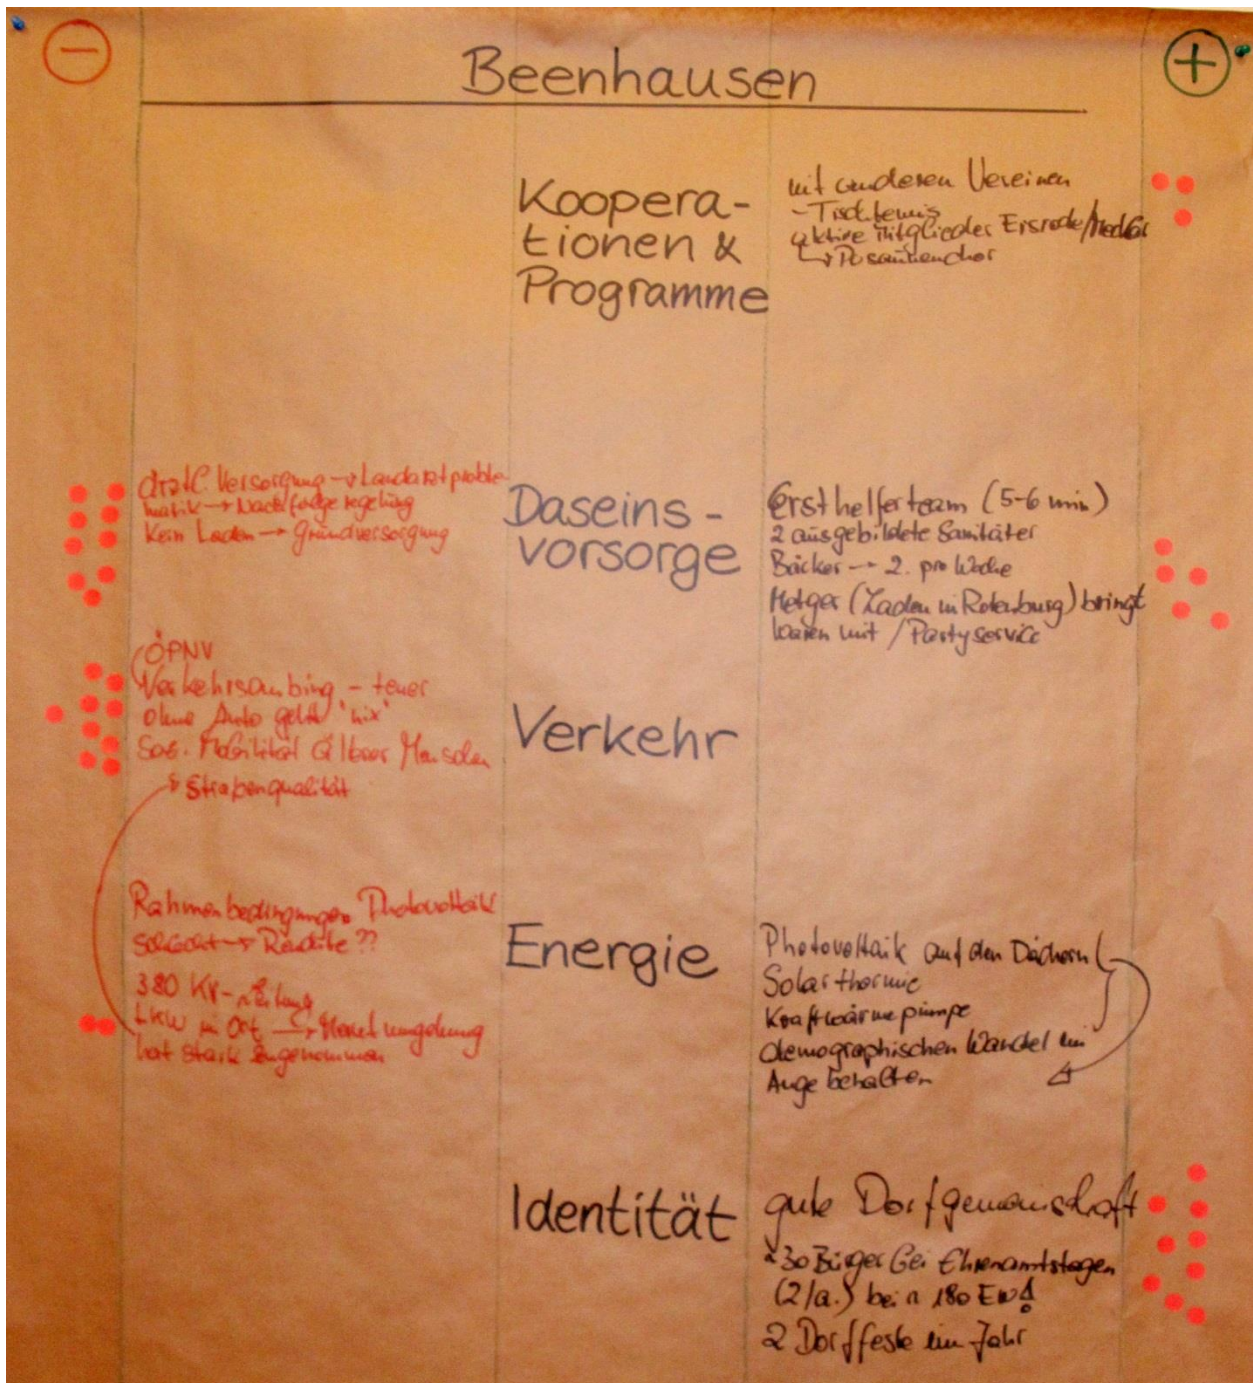 Beenhausen
Koopera-
tionen &
Programme
mit anderen Vereinen
- Tischtennis
aktive Mitglieder Ersrode/
↳ Posaunenchor
ärztl. Versorgung → Landarztproble-
matik → Nachfolgeregelung
Kein Laden → Grundversorgung
Daseins-
vorsorge
Ersthelferteam (5-6 min)
2 ausgebildete Sanitäter
Bäcker → 2. pro Woche
Metzger (Laden in Rotenburg) bringt
Waren mit / Partyservice
ÖPNV
Verkehrsanbing - teuer
ohne Auto geht "nix"
Mobilität älterer Menschen
→ Straßenqualität
Verkehr
Rahmenbedingungen Photovoltaik
schlecht → Rendite ??
380 KV-Leitung
LKW im Ort → Mautumgehung
hat stark zugenommen
Energie
Photovoltaik auf den Dächern
Solarthermie
Kraftwärmepumpe
demographischen Wandel im
Auge behalten
Identität
gute Dorfgemeinschaft
~30 Bürger bei Ehrenamtstagen
(2/a.) bei ~ 180 EW!
2 Dorffeste im Jahr